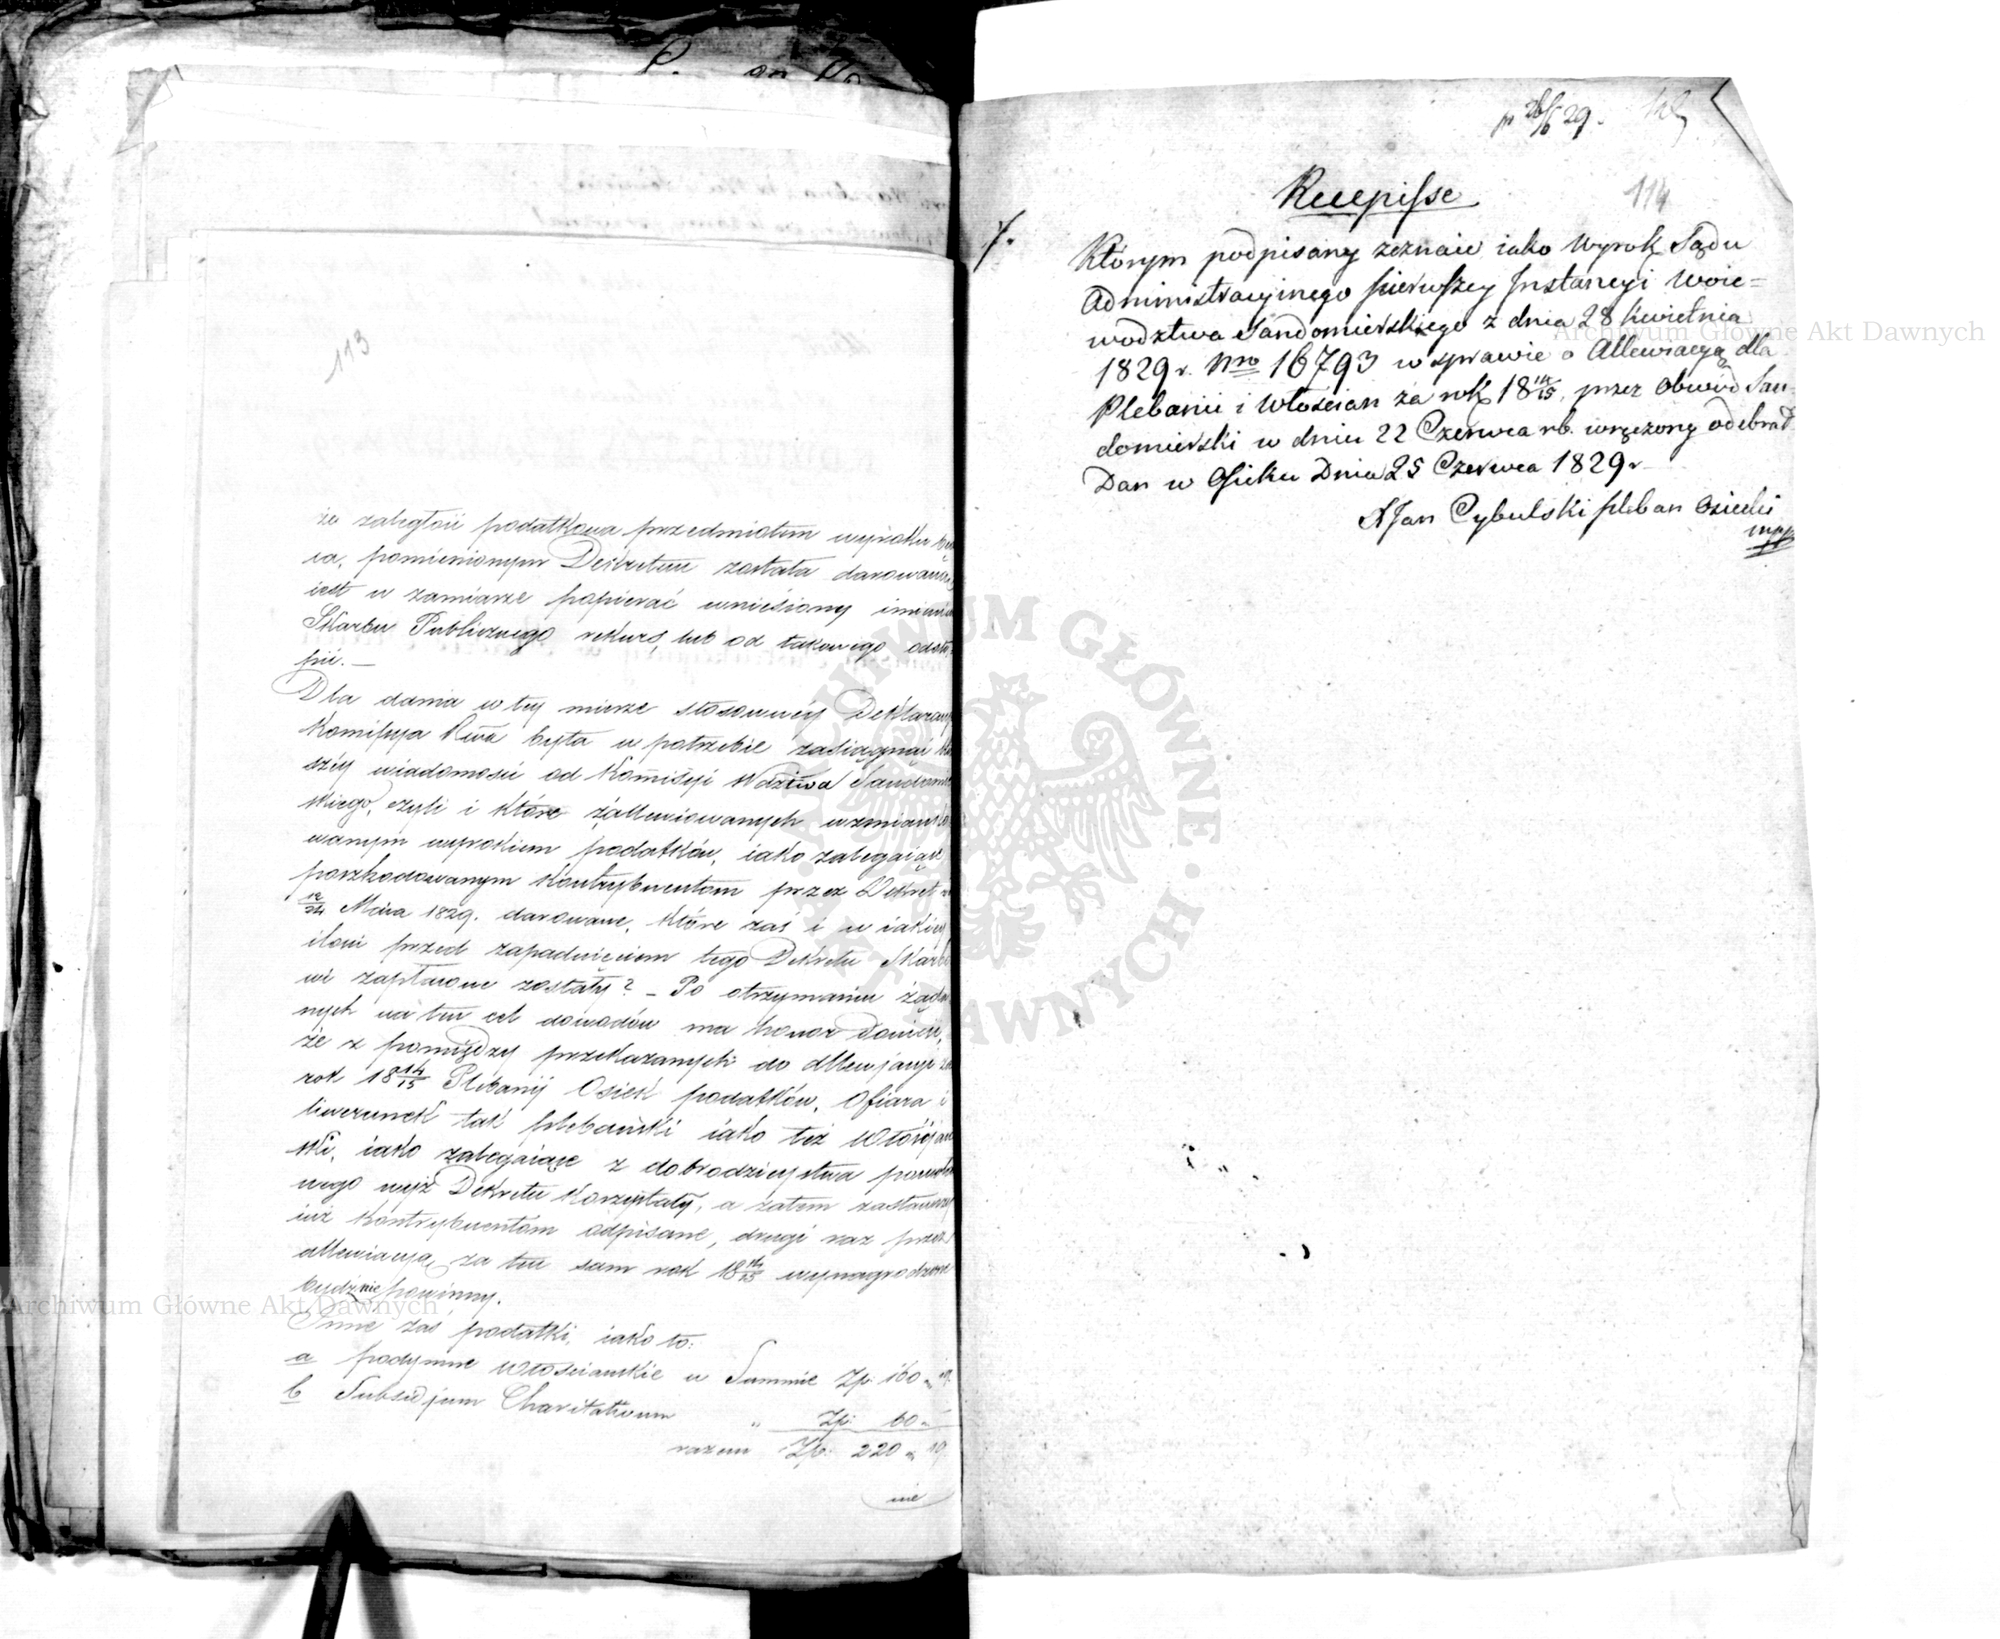 113
że zaległość podatkowa przedmiotem wyroku
ca, pomienionym Dekretem została darowana
iest w zamiarze popierać wniesiony imieniem
Skarbu Publicznego rekurs, lub od takowego odstą
pić. —
Dla dania w tey mierze stosowney Deklaracyi
Kommissya była w potrzebie zasiągnąć
széy wiadomości od Kommissyi Wdztwa Sandomir
skiego, czyli i które z allewiowanych wzmianko
wanym wyrokiem podatków, iako zalegaiące
poszkodowanym kontrybuentom przez Dekret z
12/24 Maia 1829. darowane, które zaś i w iakiey
ilości przed zapadnięciem tego Dekretu Skarbo
wi zapłacone zostały? – Po otrzymaniu żąda
nych na ten cel dowodów ma honor donieść,
że z pomiędzy przekazanych do allewjacyi za
rok 18 14/15 Plebanij Osiek podatków, Ofiara i
liwerunek tak plebański iako też Włościjań
ski, iako zalegaiące z dobrodzieystwa
nego wyż Dekretu korzystały, a zatem zostawszy
iuż kontrybuentom odpisane, drugi raz przez
allewiacyą za ten sam rok 18 14/15 wynagrodzone
bydź nie powinny.
Inne zaś podatki, iako to:
a podymne Włościańskie w Summie Zp: 160 „ 19.
b Subsidjum Charitativum „ Zp: 60 „ –
razem Zp: 220 „ 19.
nie
pr 26/6 29.
114
Recepisse
7.
Którym podpisany zeznaie iako Wyrok Sądu
Administracyjnego pierwszey Instancyi Woie=
wodztwa Sandomierskiego z dnia 28 Kwietnia
1829 r. Nro 16793 w sprawie o Allewiacyą dla
Plebanii i Włościan za rok 18 14/15, przez Obwód San
domierski w dniu 22 Czerwca rb. wręczony odebrał
Dan w Osieku Dnia 25 Czerwca 1829 r
X Jan Cybulski pleban Osiecki
mpp
Archiwum Główne Akt Dawnych
Archiwum Główne Akt Dawnych
ARCHIWUM GŁÓWNE AKT DAWNYCH